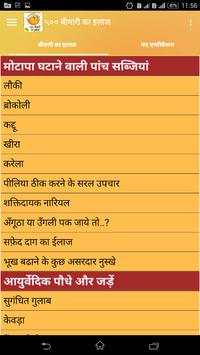 11:56
५०० बीमारी का इलाज
बीमारी का इलाज
मोटापा घटाने वाली पांच सब्जियां
लौकी
ब्रोकोली
कद्दू
खीरा
करेला
पीलिया ठीक करने के सरल उपचार
शक्तिदायक नारियल
अँगूठा या उँगली पक जाये तो..?
सफ़ेद दाग का ईलाज
भूख बढाने के कुछ असरदार नुस्खे
आयुर्वेदिक पौधे और जड़ें
सुगंधित गुलाब
केवड़ा